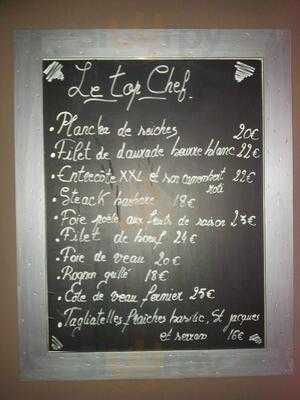 Le Top Chef
• Plancha de seiches 20€
• Filet de daurade beurre blanc 22€
• Entrecôte XXL et son camembert 22€
roti
• Steack barbare 18€
• Foie poêlé aux fruits de saison 23€
• Filet de bœuf 24€
• Foie de veau 20€
• Rognon grillé 18€
• Côte de veau fermier 25€
• Tagliatelles fraîches basilic, St jacques
et serrano 16€